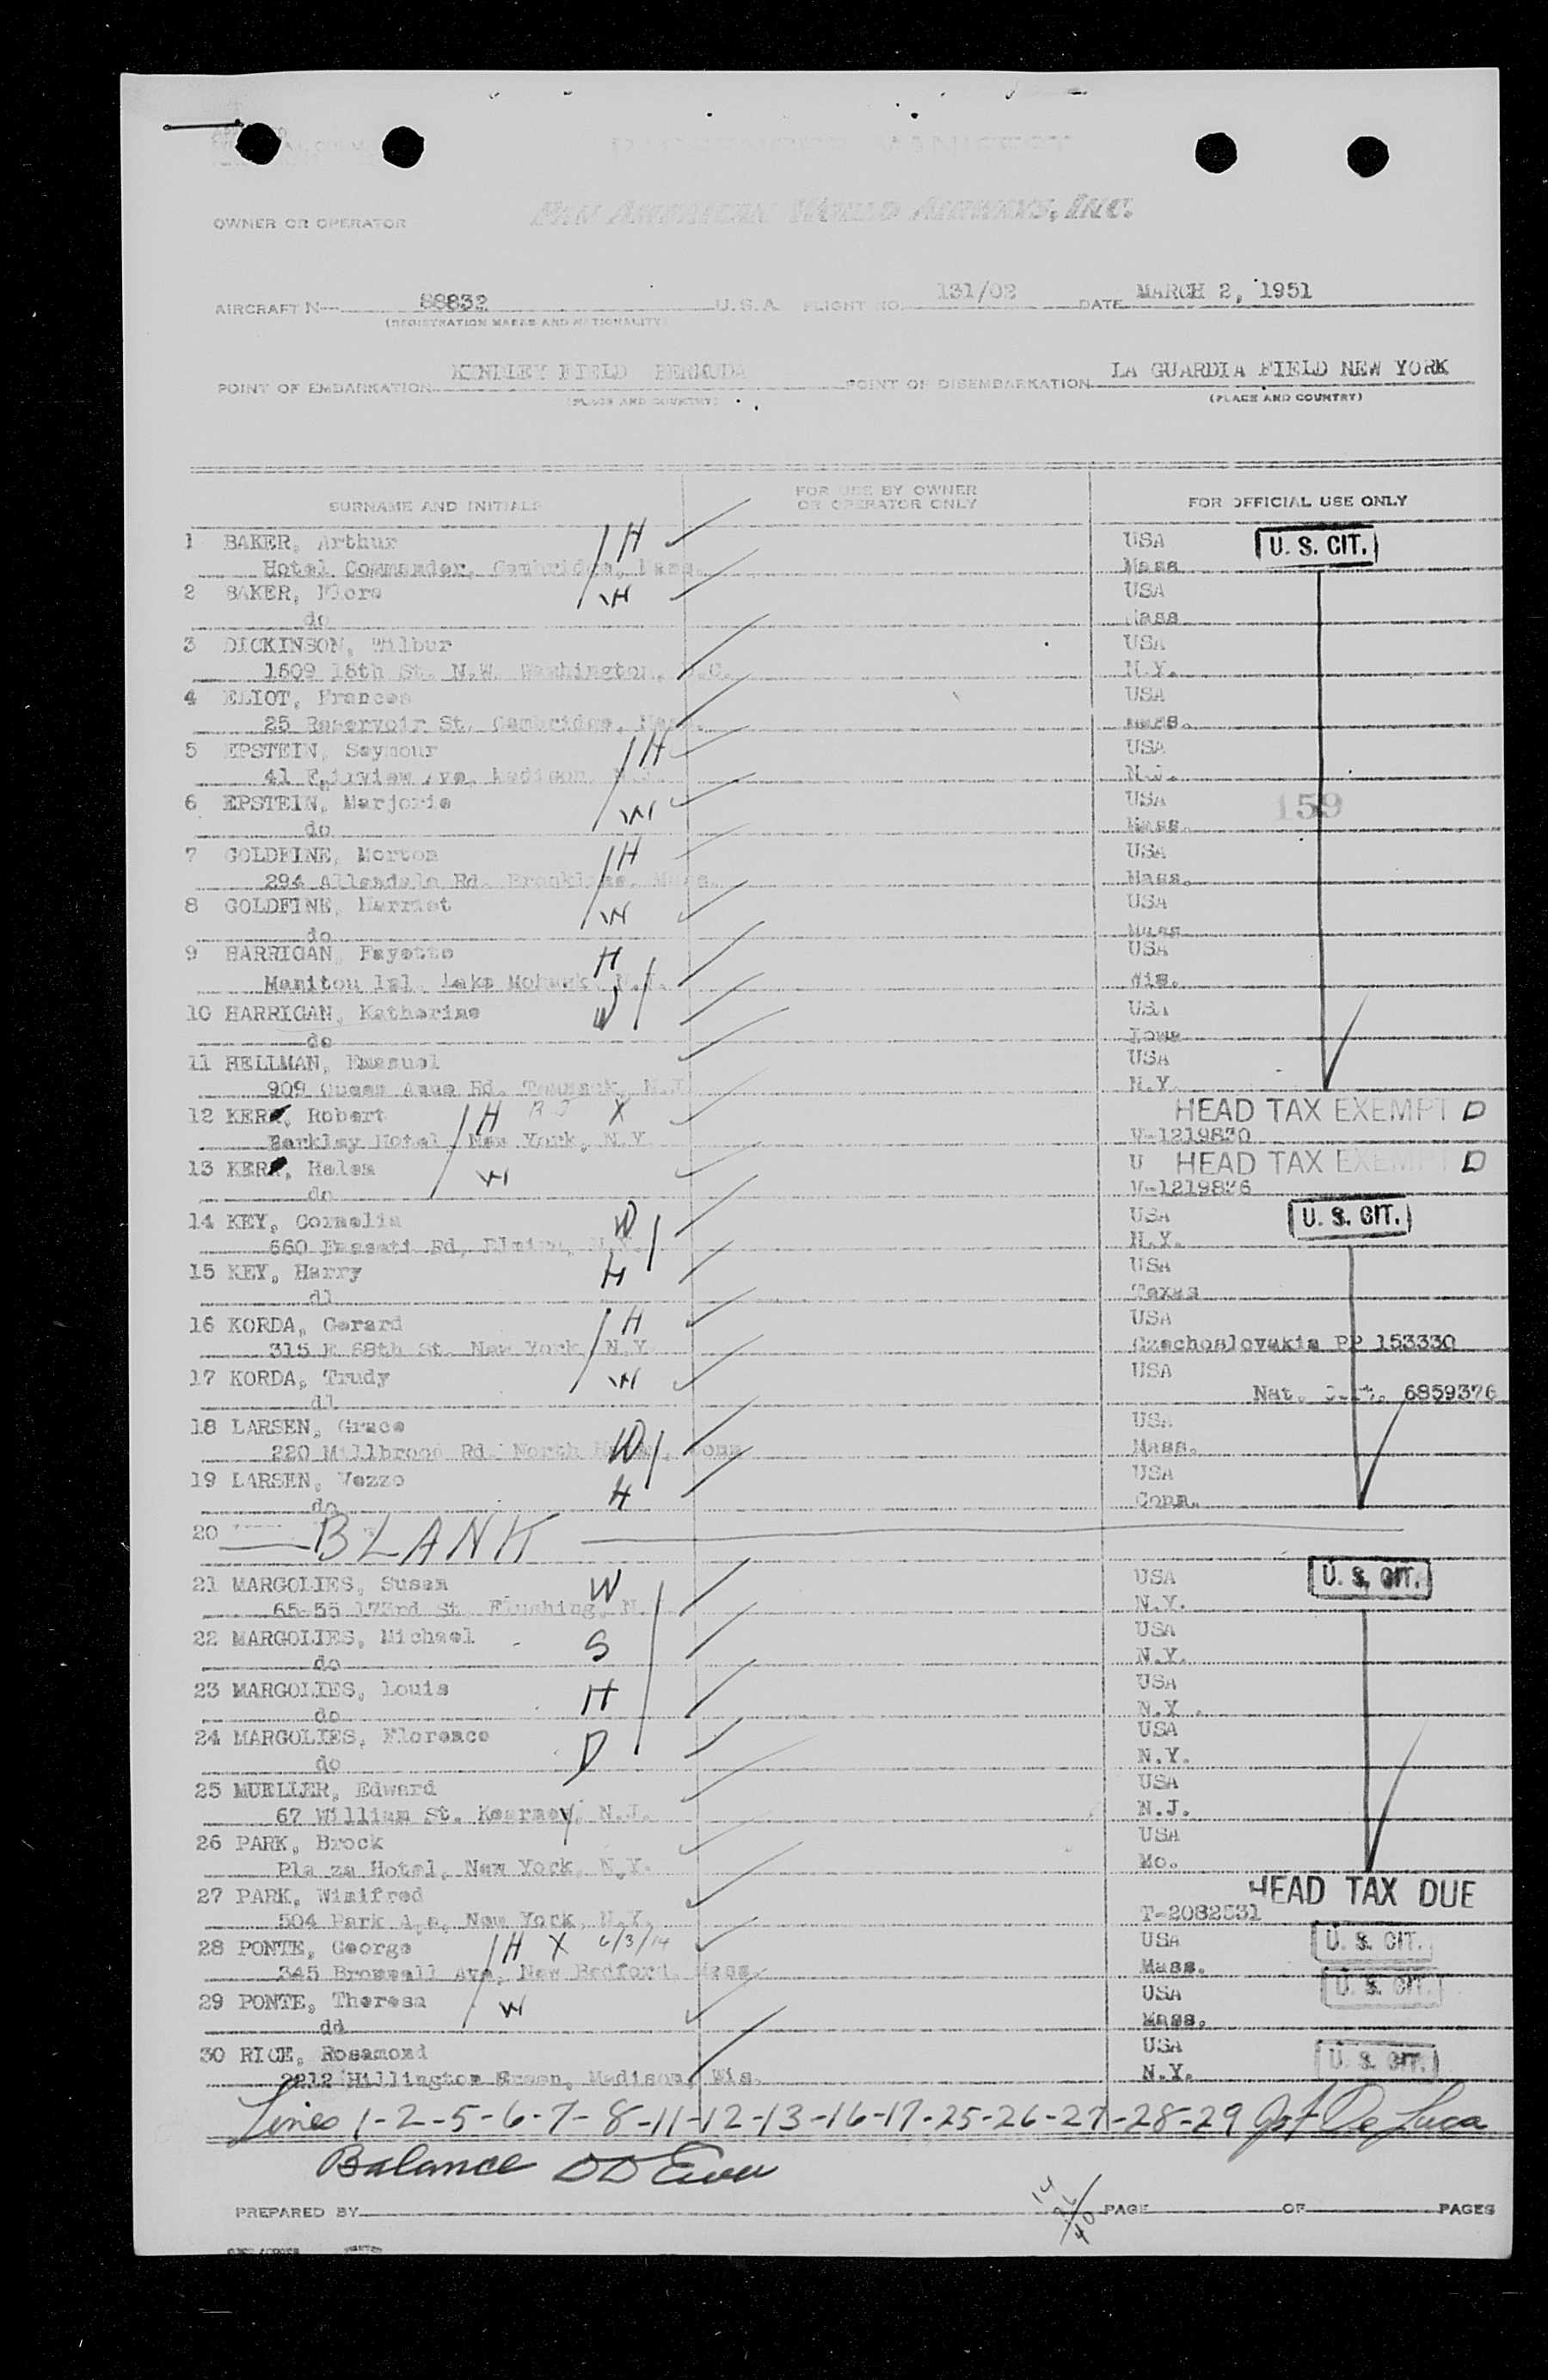 PASSENGER MANIFEST
OWNER OR OPERATOR PAN AMERICAN WORLD AIRWAYS, INC.
AIRCRAFT N 88832 U.S.A. FLIGHT NO. 131/02 DATE MARCH 2, 1951
(REGISTRATION MARKS AND NATIONALITY)
POINT OF EMBARKATION KINDLEY FIELD BERMUDA POINT OF DISEMBARKATION LA GUARDIA FIELD NEW YORK
(PLACE AND COUNTRY) (PLACE AND COUNTRY)
SURNAME AND INITIALS FOR USE BY OWNER OR OPERATOR ONLY FOR OFFICIAL USE ONLY
1 BAKER, Arthur H USA U. S. CIT.
Hotel Commander, Cambridge, Mass. Mass
2 BAKER, Flora W USA
do Mass
3 DICKINSON, Wilbur USA
1609 16th St. N.W. Washington, D.C. N.Y.
4 ELIOT, Frances USA
25 Reservoir St. Cambridge, Mass. Mass.
5 EPSTEIN, Seymour H USA
41 Fairview Ave, Madison, N.J. N.J.
6 EPSTEIN, Marjorie W USA 159
do Mass.
7 GOLDFINE, Morton H USA
294 Allendale Rd. Brookline, Mass. Mass.
8 GOLDFINE, Harriet W USA
do Mass
9 HARRIGAN, Fayette H USA
Manitou Isl. Lake Mohawk, N.J. Wis.
10 HARRIGAN, Katherine W USA
do Iowa
11 HELLMAN, Emanuel USA
909 Queen Anne Rd. Teaneck, N.J. N.Y.
12 KER, Robert H X HEAD TAX EXEMPT D
Barkley Hotel, New York, N.Y V-1219830
13 KER, Helen W U HEAD TAX EXEMPT D
do
14 KEY, Cornelia W USA U. S. CIT.
660 Rd, N.Y. N.Y.
15 KEY, Harry H USA
dl Texas
16 KORDA, Gerard H USA
315 E 68th St. New York, N.Y. Czechoslovakia PP 153330
17 KORDA, Trudy W USA
dl Nat. Cert. 6859376
18 LARSEN, Grace W USA
220 Millbrook Rd. North Haven, Conn Mass.
19 LARSEN, Vezzo H USA
do Conn.
20 BLANK
21 MARGOLIES, Susan W USA U. S. CIT.
65-55 173rd St. Flushing, N. N.Y.
22 MARGOLIES, Michael S USA
do N.Y.
23 MARGOLIES, Louis H USA
do N.Y.
24 MARGOLIES, Florence D USA
do N.Y.
25 MUELLER, Edward USA
67 William St. Kearney, N.J. N.J.
26 PARK, Brock USA
Pla za Hotel, New York, N.Y. Mo.
27 PARK, Winifred HEAD TAX DUE
504 Park Ave, New York, N.Y. T-2082531
28 PONTE, George H X 6/3/14 USA U. S. CIT.
345 Brownell Ave, New Bedford, Mass. Mass.
29 PONTE, Theresa W USA U. S. CIT.
dd Mass.
30 RICE, Rosamond USA U. S. CIT.
2212 Hillington Green, Madison, Wis. N.Y.
Lines 1-2-5-6-7-8-11-12-13-16-17-25-26-27-28-29 De Luca
Balance
PREPARED BY 14 26 40 PAGE OF PAGES